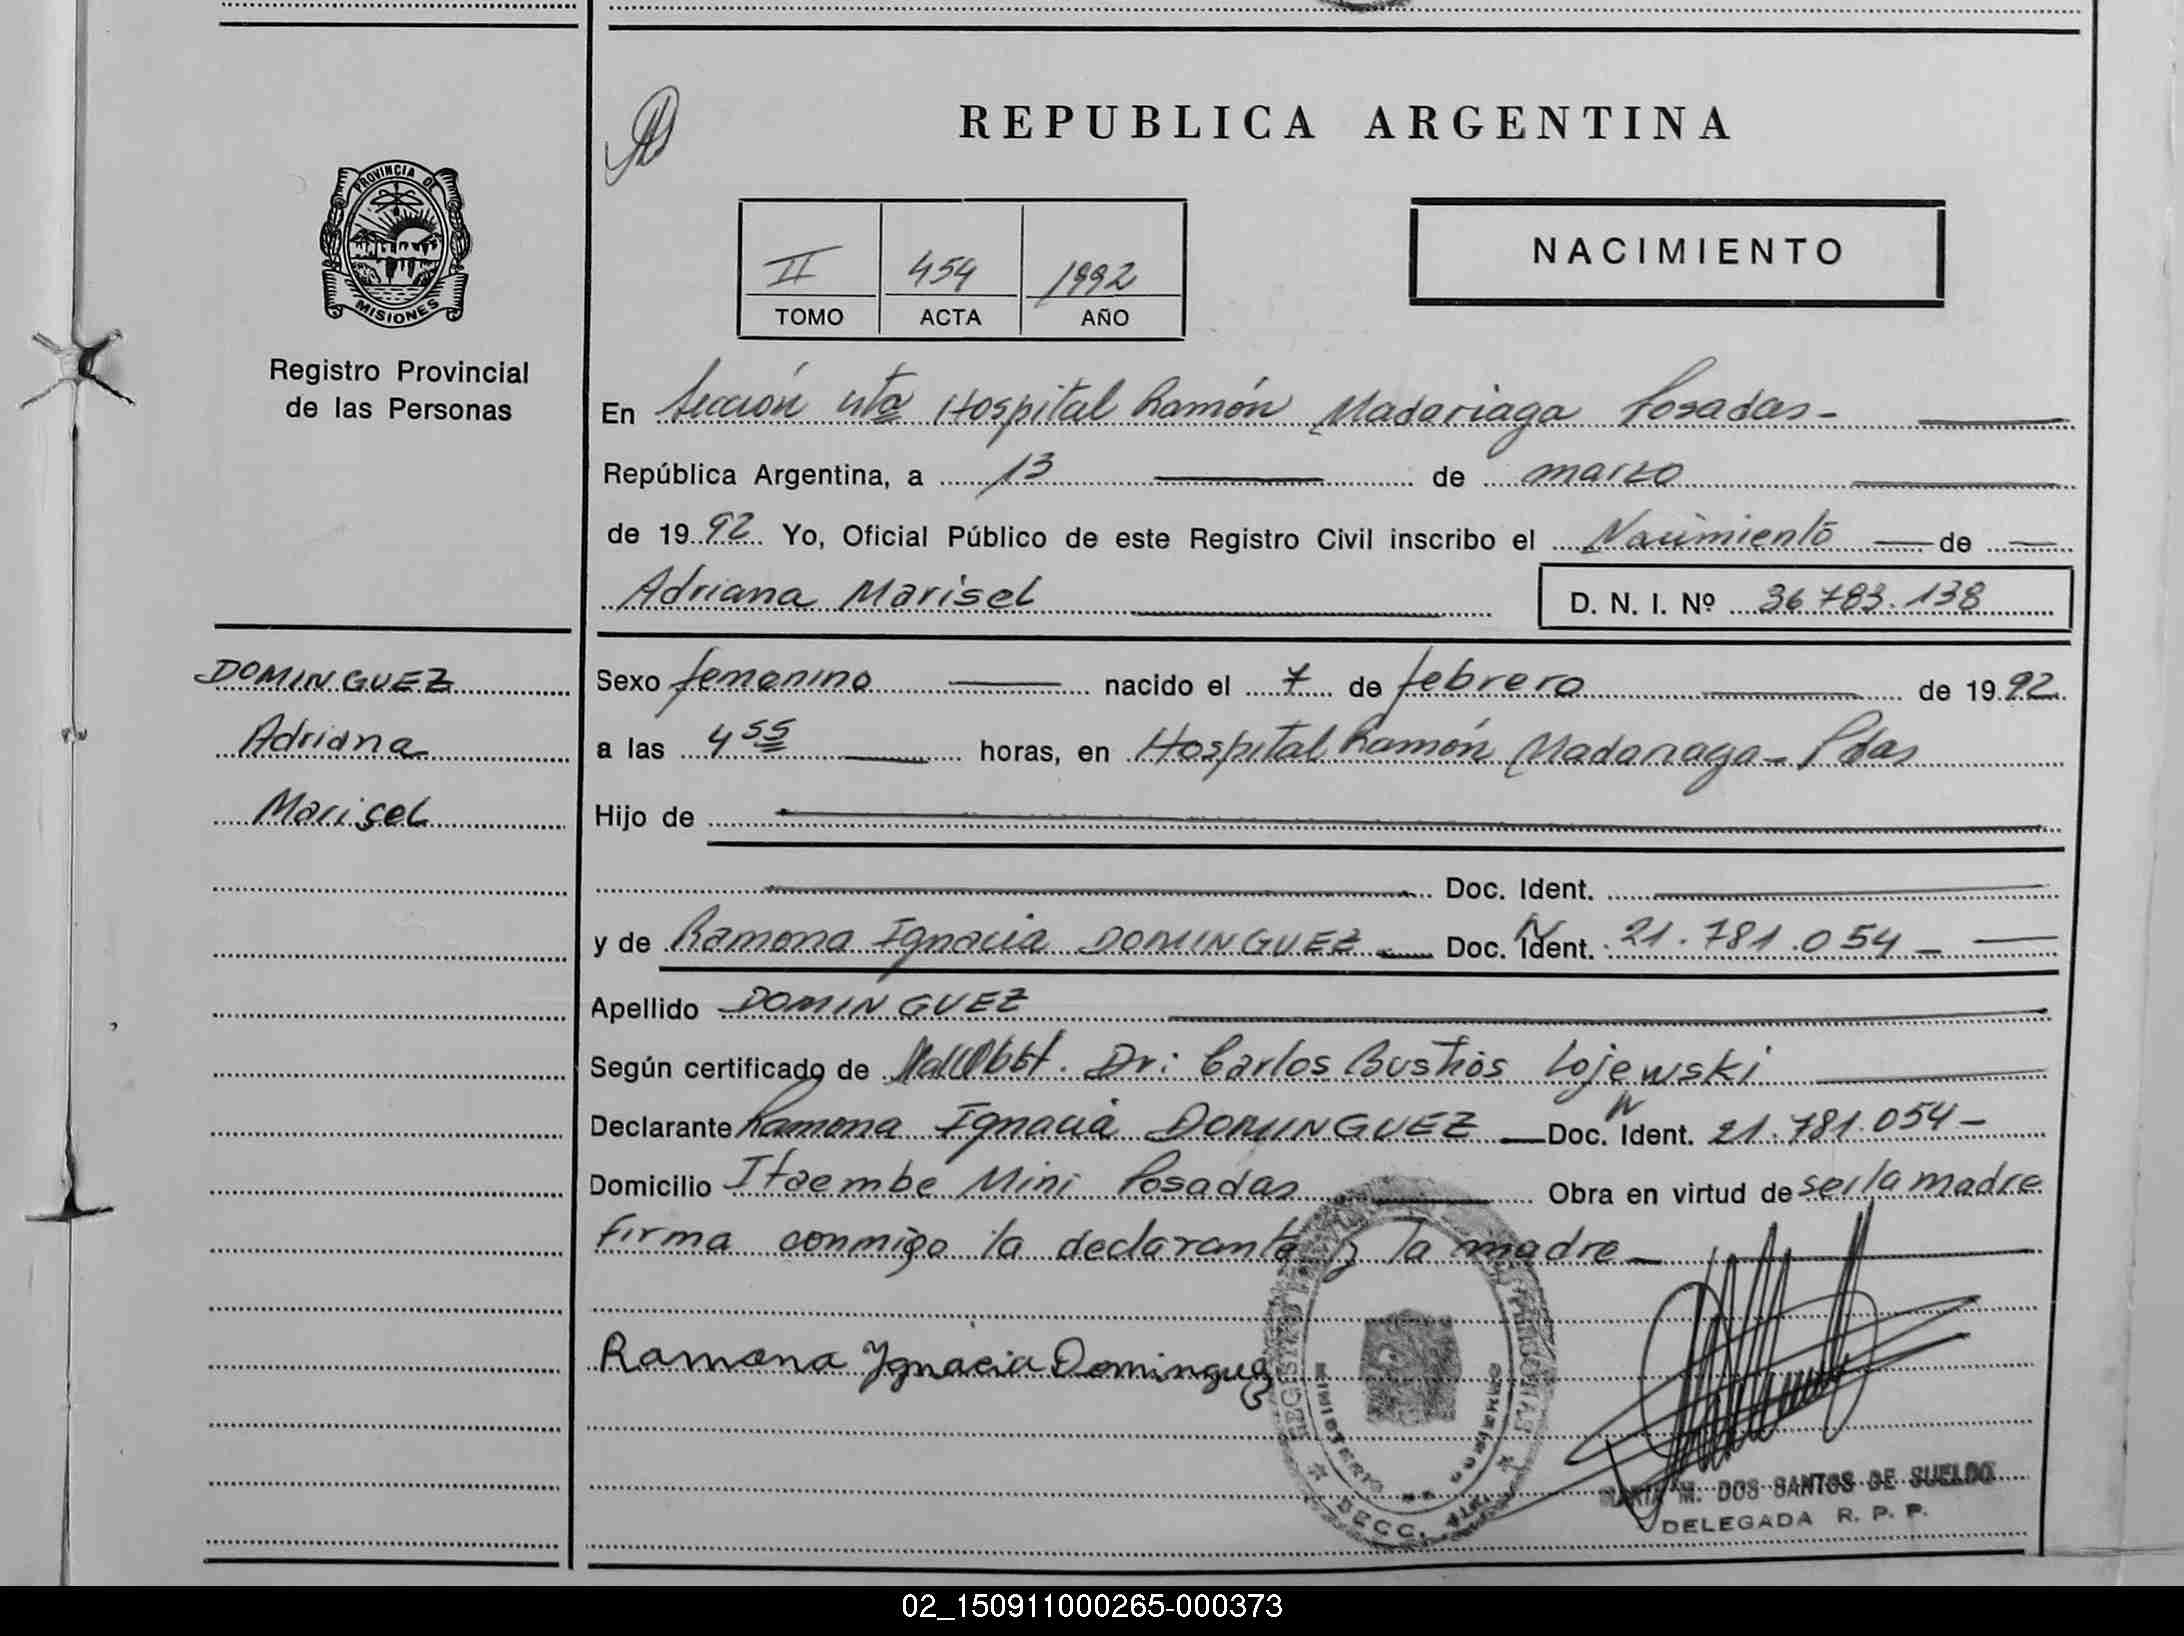 REPUBLICA ARGENTINA
PROVINCIA DE
MISIONES
Registro Provincial
de las Personas
II 454 1992
TOMO ACTA AÑO
NACIMIENTO
En Sección 4ta Hospital Ramón Madariaga Posadas-
República Argentina, a 13 de marzo
de 1992 Yo, Oficial Público de este Registro Civil inscribo el Nacimiento de
Adriana Marisel
D. N. I. Nº 36.783.138
DOMINGUEZ
Adriana
Marisel
Sexo femenino nacido el 7 de febrero de 1992
a las 4 55 horas, en Hospital Ramón Madariaga - Pdas
Hijo de
Doc. Ident.
y de Ramona Ignacia DOMINGUEZ Doc. Ident. 21.781.054-
Apellido DOMINGUEZ
Según certificado de Dr: Carlos Bustos Lojewski
Declarante Ramona Ignacia DOMINGUEZ Doc. Ident. 21.781.054-
Domicilio Itaembe Mini Posadas Obra en virtud de ser la madre
firma conmigo la declarante y la madre
Ramona Ygnacia Dominguez
MARIA M. DOS SANTOS DE SUELDO
DELEGADA R. P. P.
02_150911000265-000373